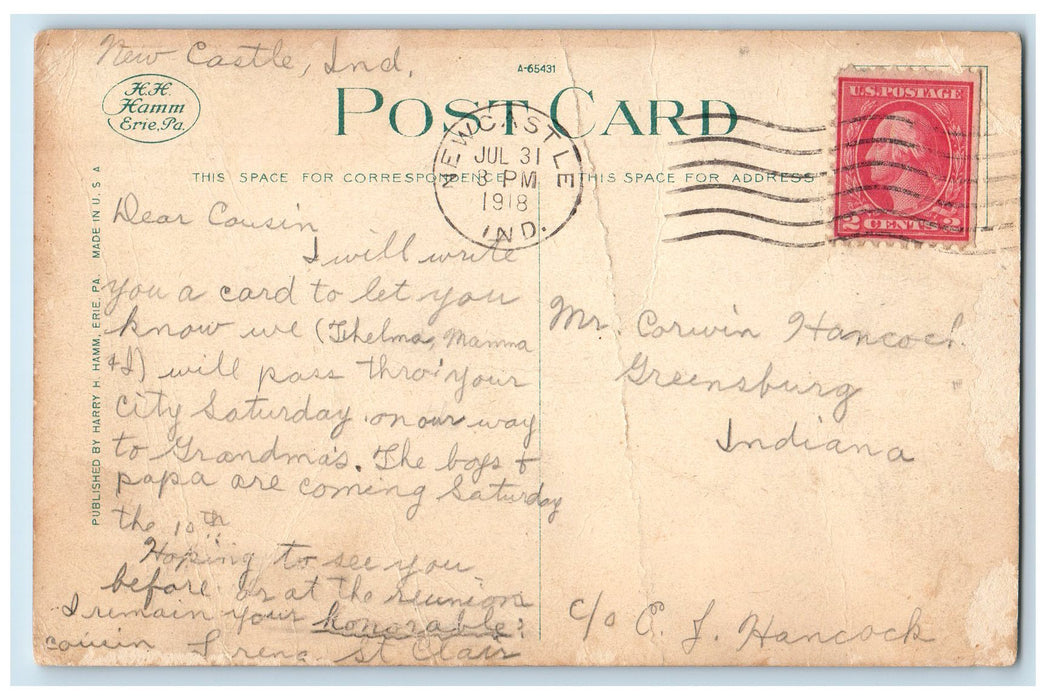 New Castle, Ind.
A-65431
H.H.
Hamm
Erie, Pa.
POST CARD
NEWCASTLE
JUL 31
8 PM
1918
IND.
U.S. POSTAGE
2 CENTS 2
THIS SPACE FOR CORRESPONDENCE
THIS SPACE FOR ADDRESS
PUBLISHED BY HARRY H. HAMM, ERIE, PA. MADE IN U.S A
Dear Cousin
I will write
you a card to let you
know we (Thelma, Mamma
+ I) will pass thro' your
city Saturday on our way
to Grandma's. The boys +
papa are coming Saturday
the 10th
Hoping to see you
before or at the reunion
I remain your honorable
cousin Irena St Clair
Mr. Corwin Hancock
Greensburg
Indiana
c/o E. J. Hancock